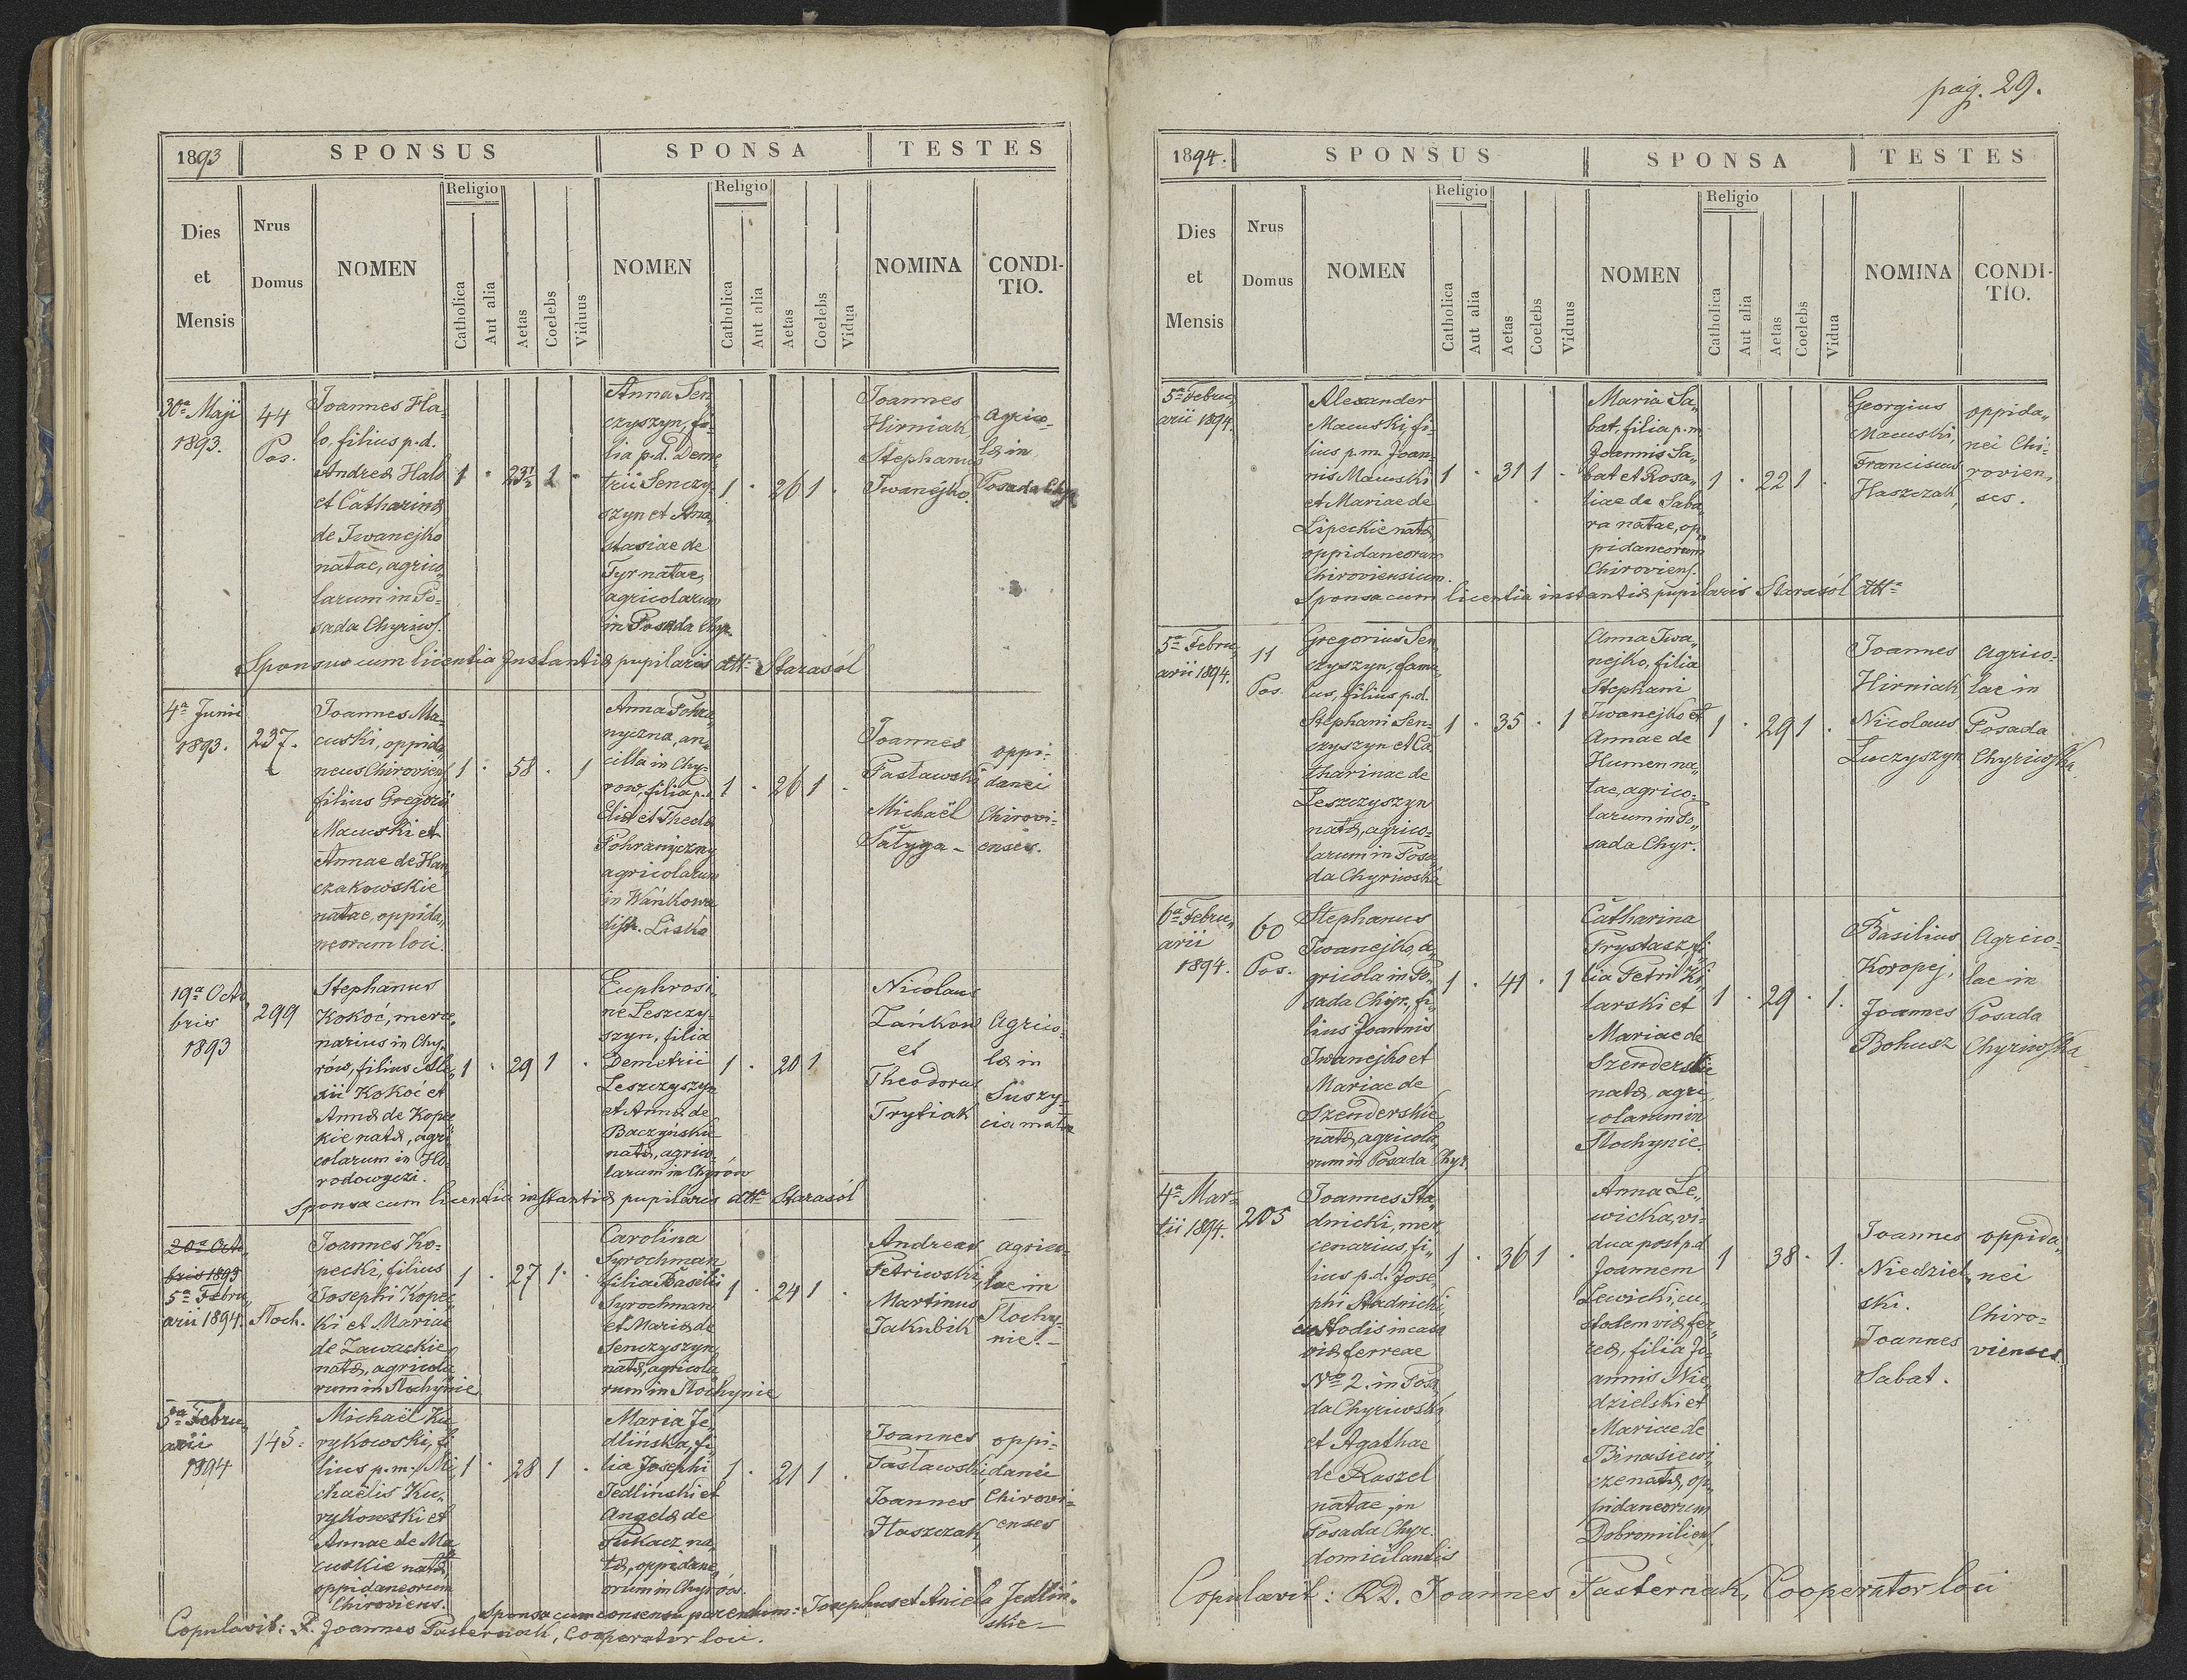 pag. 29.
1893
SPONSUS
SPONSA
TESTES
Dies
et
Mensis
Nrus
Domus
NOMEN
Religio
Catholica
Aut alia
Aetas
Coelebs
Viduus
NOMEN
Religio
Catholica
Aut alia
Aetas
Coelebs
Vidua
NOMINA
CONDI-
TIO.
30a Maji
1893.
44
Pos.
Joannes Ha-
lo, filius p.d.
Andreæ Halo
et Catharinæ
de Iwanejko
natae, agrico„
larum in Po-
sada Chyriws.
1 · 23½ 1 ·
Anna Sen
czyszyn, fi-
lia p.d. Deme„
trii Senczy-
szyn et Ana„
stasiae de
Tyr natae,
agricolarum
in Posada Chyr.
1 · 26 1 ·
Joannes
Hirniak,
Stephanus
Iwanejko.
agrico-
læ in
Posada Chyr.
Sponsus cum licentia Instantiæ pupilaris dtto Starasól
4a Junii
1893.
237.
Joannes Ma-
cuski, oppida„
neus Chiroviens
filius Gregorii
Macuski et
Annae de Han
czakowskie
natae, oppida„
neorum loci.
1 · 58 · 1
Anna Pohra
nyczna, an„
cilla in Chy-
row, filia p.d.
Eliæ et Theclæ
Pohranyczny
agricolarum
in Wańkowa
distr. Lisko
1 · 26 1 ·
Joannes
Pasławski
Michaël
Šatyga -
oppi-
danei
Chirovi-
enses.
19a Octo
bris
1893
299
Stephanus
Kokoć, merce„
narius in Chy„
rów, filius Ale„
xii Kokoć et
Annæ de Kope
kie natæ, agri
colarum in Ho-
rodowyczi.
1 · 29 1 ·
Euphrosi„
ne Leszczy-
szyn, filia
Demetrii
Leszczyszyn
et Annæ de
Baczyńskie
natæ, agrico-
larum in Chyrów
1 · 20 1
Nicolaus
Łańkow
et
Theodorus
Trytiak
Agrico-
læ in
Suszy-
cia mała
Sponsa cum licentia instantiæ pupilaris dtto Starasól
20a Octo„
bris 1893
5a Febru„
arii 1894.
Stoch.
Joannes Ko-
pecki, filius
Josephi Kopec„
ki et Mariae
de Zawackie
natæ, agricola
rum in Stochynie
1 · 27 1 ·
Carolina
Syrochman
filia Basilii
Syrochman
et Mariæ de
Senczyszyn
natæ, agricola
rum in Stochynie
1 · 24 1 ·
Andreas
Petriwski,
Martinus
Jakubik
agrico-
lae in
Stochy-
nie. -
5a Febru„
arii
1894
145.
Michaël Ku
rykowski, fi
lius p.m. Mi
chaëlis Ku„
rykowski et
Annae de Ma
cuskie natæ,
oppidaneorum
Chiroviens.
1 · 28 1 ·
Maria Je„
dlińska, fi„
lia Josephi
Jedliński et
Angelæ de
Pukacz na
tæ, oppidane„
orum in Chyrów.
1 · 21 1 ·
Joannes
Pasławski
Joannes
Haszczak,
oppi-
danei
Chirovi-
enses
Sponsa cum consensu parentum: Josephus et Aniela Jedliń„
skie -
Copulavit: P. Joannes Pasternak, Cooperator loci.
1894.
SPONSUS
SPONSA
TESTES
Dies
et
Mensis
Nrus
Domus
NOMEN
Religio
Catholica
Aut alia
Aetas
Coelebs
Viduus
NOMEN
Religio
Catholica
Aut alia
Aetas
Coelebs
Vidua
NOMINA
CONDI-
TIO.
5a Febru„
arii 1894.
Alexander
Macuski, fi-
lius p.m. Joan-
nis Macuski
et Mariae de
Lipeckie natæ,
oppidaneorum
Chiroviensium.
1 · 31 1 ·
Maria Sa„
bat, filia p.m.
Joannis Sa„
bat et Rosa„
liae de Saba„
ra natae, op„
pidaneorum
Chiroviens.
1 · 22 1 ·
Georgius
Macuski,
Franciscus
Haszczak,
oppida„
nei Chi-
rovien„
ses.
Sponsa cum licentia instantiæ pupilaris Starasól dtto
5a Febru„
arii 1894.
11
Pos.
Gregorius Sen
czyszyn, famu„
lus, filius p.d.
Stephani Sen-
czyszyn et Ca
tharinae de
Leszczyszyn
natæ, agrico-
larum in Posa„
da Chyriwska
1 · 35 · 1
Anna Iwa„
nejko, filia
Stephani
Iwanejko et
Annae de
Humen na„
tae, agrico-
larum in Po„
sada Chyr.
1 · 29 1 ·
Joannes
Hirniak,
Nicolaus
Luczyszyn
Agrico-
lae in
Posada
Chyriwska
6a Febru„
arii
1894.
60
Pos.
Stephanus
Iwanejko, a„
gricola in Po„
sada Chyr. fi„
lius Joannis
Iwanejko et
Mariae de
Szenderskie
natæ, agricola„
rum in Posada Chyr.
1 · 41 · 1
Catharina
Prystasz fi„
lia Petri Ki„
larski et
Mariae de
Szenderskie
natæ, agri„
colarum in
Stochynie.
1 · 29 · 1.
Basilius
Koropej,
Joannes
Bohusz
Agrico-
lae in
Posada
Chyriwska
4a Mar-
tii 1894.
205
Joannes Sta„
dnicki, mer
cenarius, fi„
lius p.d. Jose„
phi Stadnicki,
custodis in casa
viæ ferreae
No 2. in Posa„
da Chyriwska
et Agathae
de Kaszel
natae, in
Posada Chyr.
domicilantis
1 · 36 1 ·
Anna Le„
wicka, vi-
dua post p.d.
Joannem
Lewicki, cu„
stodem viæ fer„
reæ, filia Jo„
annis Nie„
dzielski et
Mariae de
Binasiewi„
cze natæ, op„
pidaneorum
Dobromiliens.
1 · 38 · 1.
Joannes
Niedziel„
ski.
Joannes
Sabat.
oppida„
nei
Chiro-
vienses.
Copulavit: RD. Joannes Pasternak, Cooperator loci